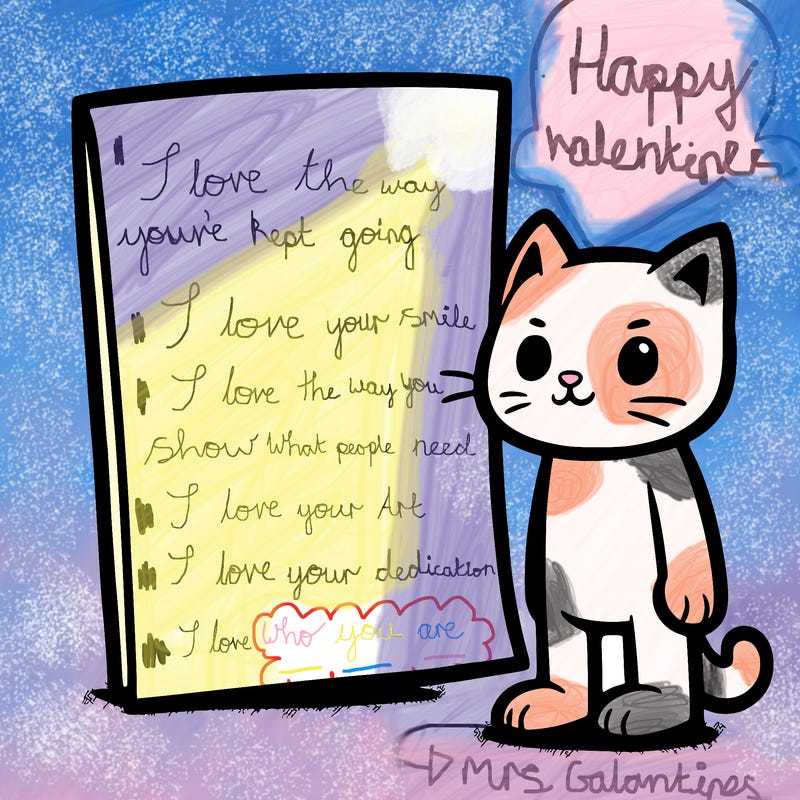 Happy
Valentines
I love the way
you've kept going
I love your smile
I love the way you
show what people need
I love your Art
I love your dedication
I love who you are
Mrs Galantines